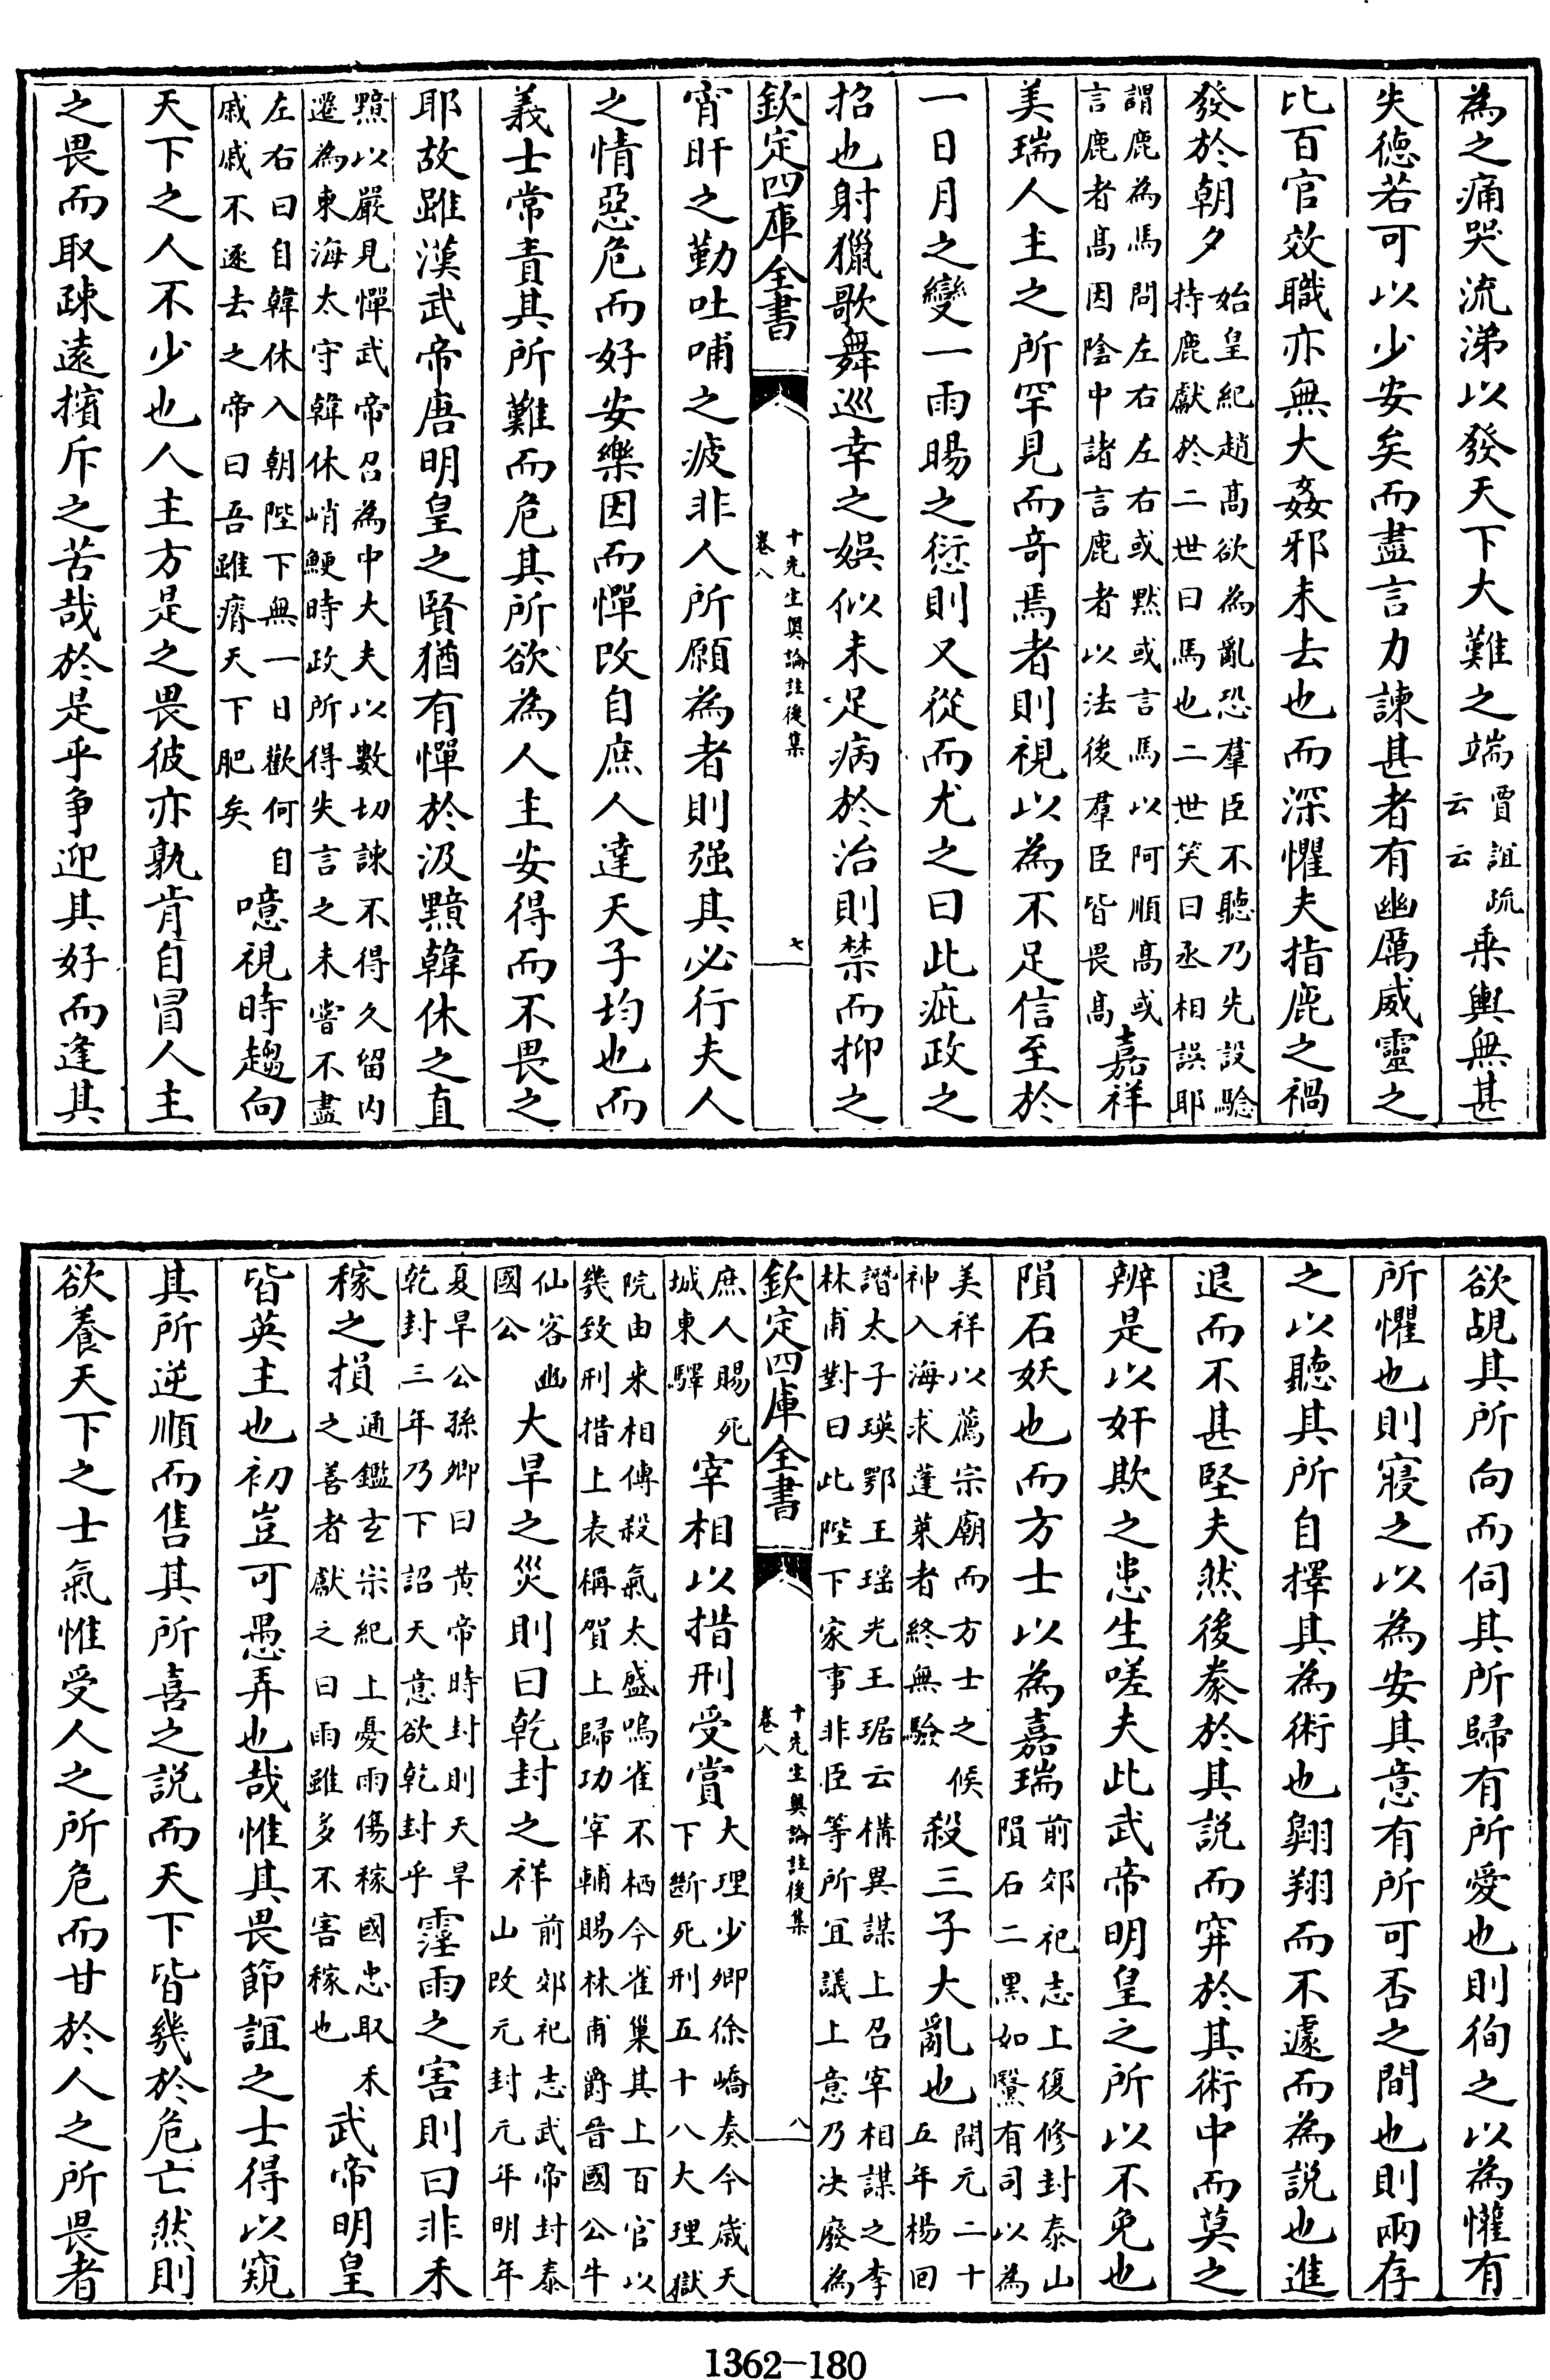 為之痛哭流涕以發天下大難之端賈誼疏云云乘輿無甚
失德若可以少安矣而盡言力諫甚者有幽厲威靈之
比百官效職亦無大姦邪未去也而深懼夫指鹿之禍
發於朝夕始皇紀趙髙欲為亂恐羣臣不聽乃先設驗持鹿獻於二世曰馬也二世笑曰丞相誤耶
謂鹿為馬問左右左右或黙或言馬以阿順髙或言鹿者髙因陰中諸言鹿者以法後羣臣皆畏髙嘉祥
美瑞人主之所罕見而竒焉者則視以為不足信至於
一日月之變一雨暘之愆則又從而尤之曰此疵政之
招也射獵歌舞巡幸之娯似未足病於治則禁而抑之
欽定四庫全書
十先生奥論註後集
卷八
七
宵旰之勤吐哺之疲非人所願為者則强其必行夫人
之情惡危而好安樂因而憚改自庶人達天子均也而
義士常責其所難而危其所欲為人主安得而不畏之
耶故雖漢武帝唐明皇之賢猶有憚於汲黯韓休之直
黯以嚴見憚武帝召為中大夫以數切諫不得久留内遷為東海太守韓休峭鯁時政所得失言之未嘗不盡
左右曰自韓休入朝陛下無一日歡何自戚戚不逐去之帝曰吾雖瘠天下肥矣噫視時趨向
天下之人不少也人主方是之畏彼亦孰肯自冒人主
之畏而取疎逺擯斥之苦哉於是乎争迎其好而逢其
欲覘其所向而伺其所歸有所愛也則徇之以為懽有
所懼也則寝之以為安其意有所可否之間也則兩存
之以聽其所自擇其為術也翺翔而不遽而為説也進
退而不甚堅夫然後豢於其説而穽於其術中而莫之
辨是以奸欺之患生嗟夫此武帝明皇之所以不免也
隕石妖也而方士以為嘉瑞前郊祀志上復修封泰山隕石二黒如黳有司以為
美祥以薦宗廟而方士之候神入海求蓬萊者終無驗殺三子大亂也開元二十五年楊回
譖太子瑛鄂王瑶光王琚云構異謀上召宰相謀之李林甫對曰此陛下家事非臣等所宜議上意乃决廢為
欽定四庫全書
十先生奥論註後集
卷八
八
庶人賜死城東驛宰相以措刑受賞大理少卿徐嶠奏今嵗天下斷死刑五十八大理獄
院由来相傳殺氣太盛嗚雀不栖今雀巢其上百官以幾致刑措上表稱賀上歸功宰輔賜林甫爵晉國公牛
仙客豳國公大旱之災則曰乾封之祥前郊祀志武帝封泰山改元封元年明年
夏旱公孫卿曰黄帝時封則天旱乾封三年乃下詔天意欲乾封乎霪雨之害則曰非禾
稼之損通鑑𤣥宗紀上憂雨傷稼國忠取禾之善者獻之曰雨雖多不害稼也武帝明皇
皆英主也初豈可愚弄也哉惟其畏節誼之士得以窺
其所逆順而售其所喜之説而天下皆幾於危亡然則
欲養天下之士氣惟受人之所危而甘於人之所畏者
1362-180